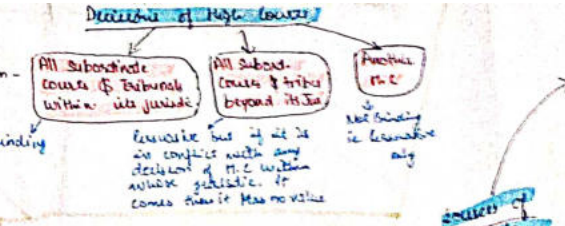 Decisions of High Courts
All Subordinate
Courts & Tribunals
within its jurisdic
All Subord.
Courts & tribu
beyond its Jur
Another
H.C
Binding
Persuasive but if it is
in conflict with any
decision of H.C within
whose jurisdic. it
comes then it has no value
Not Binding
ie Persuasive
only
Sources of